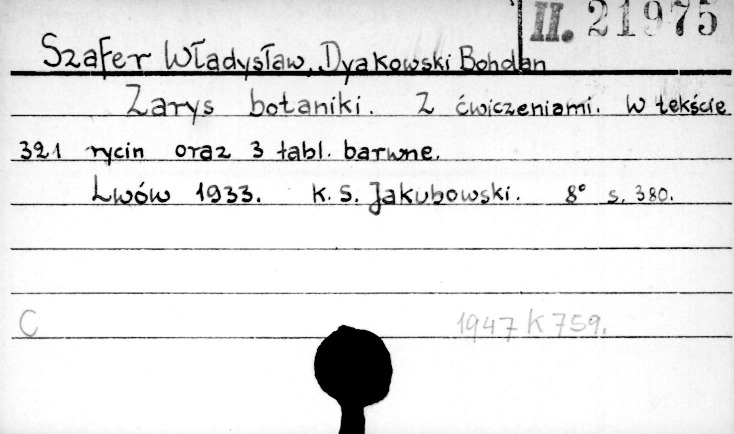 II. 21975
Szafer Władysław, Dyakowski Bohdan
Zarys botaniki. Z ćwiczeniami. W tekście
321 rycin oraz 3 tabl. barwne.
Lwów 1933. K. S. Jakubowski. 8° s. 380.
C 1947 K 759.